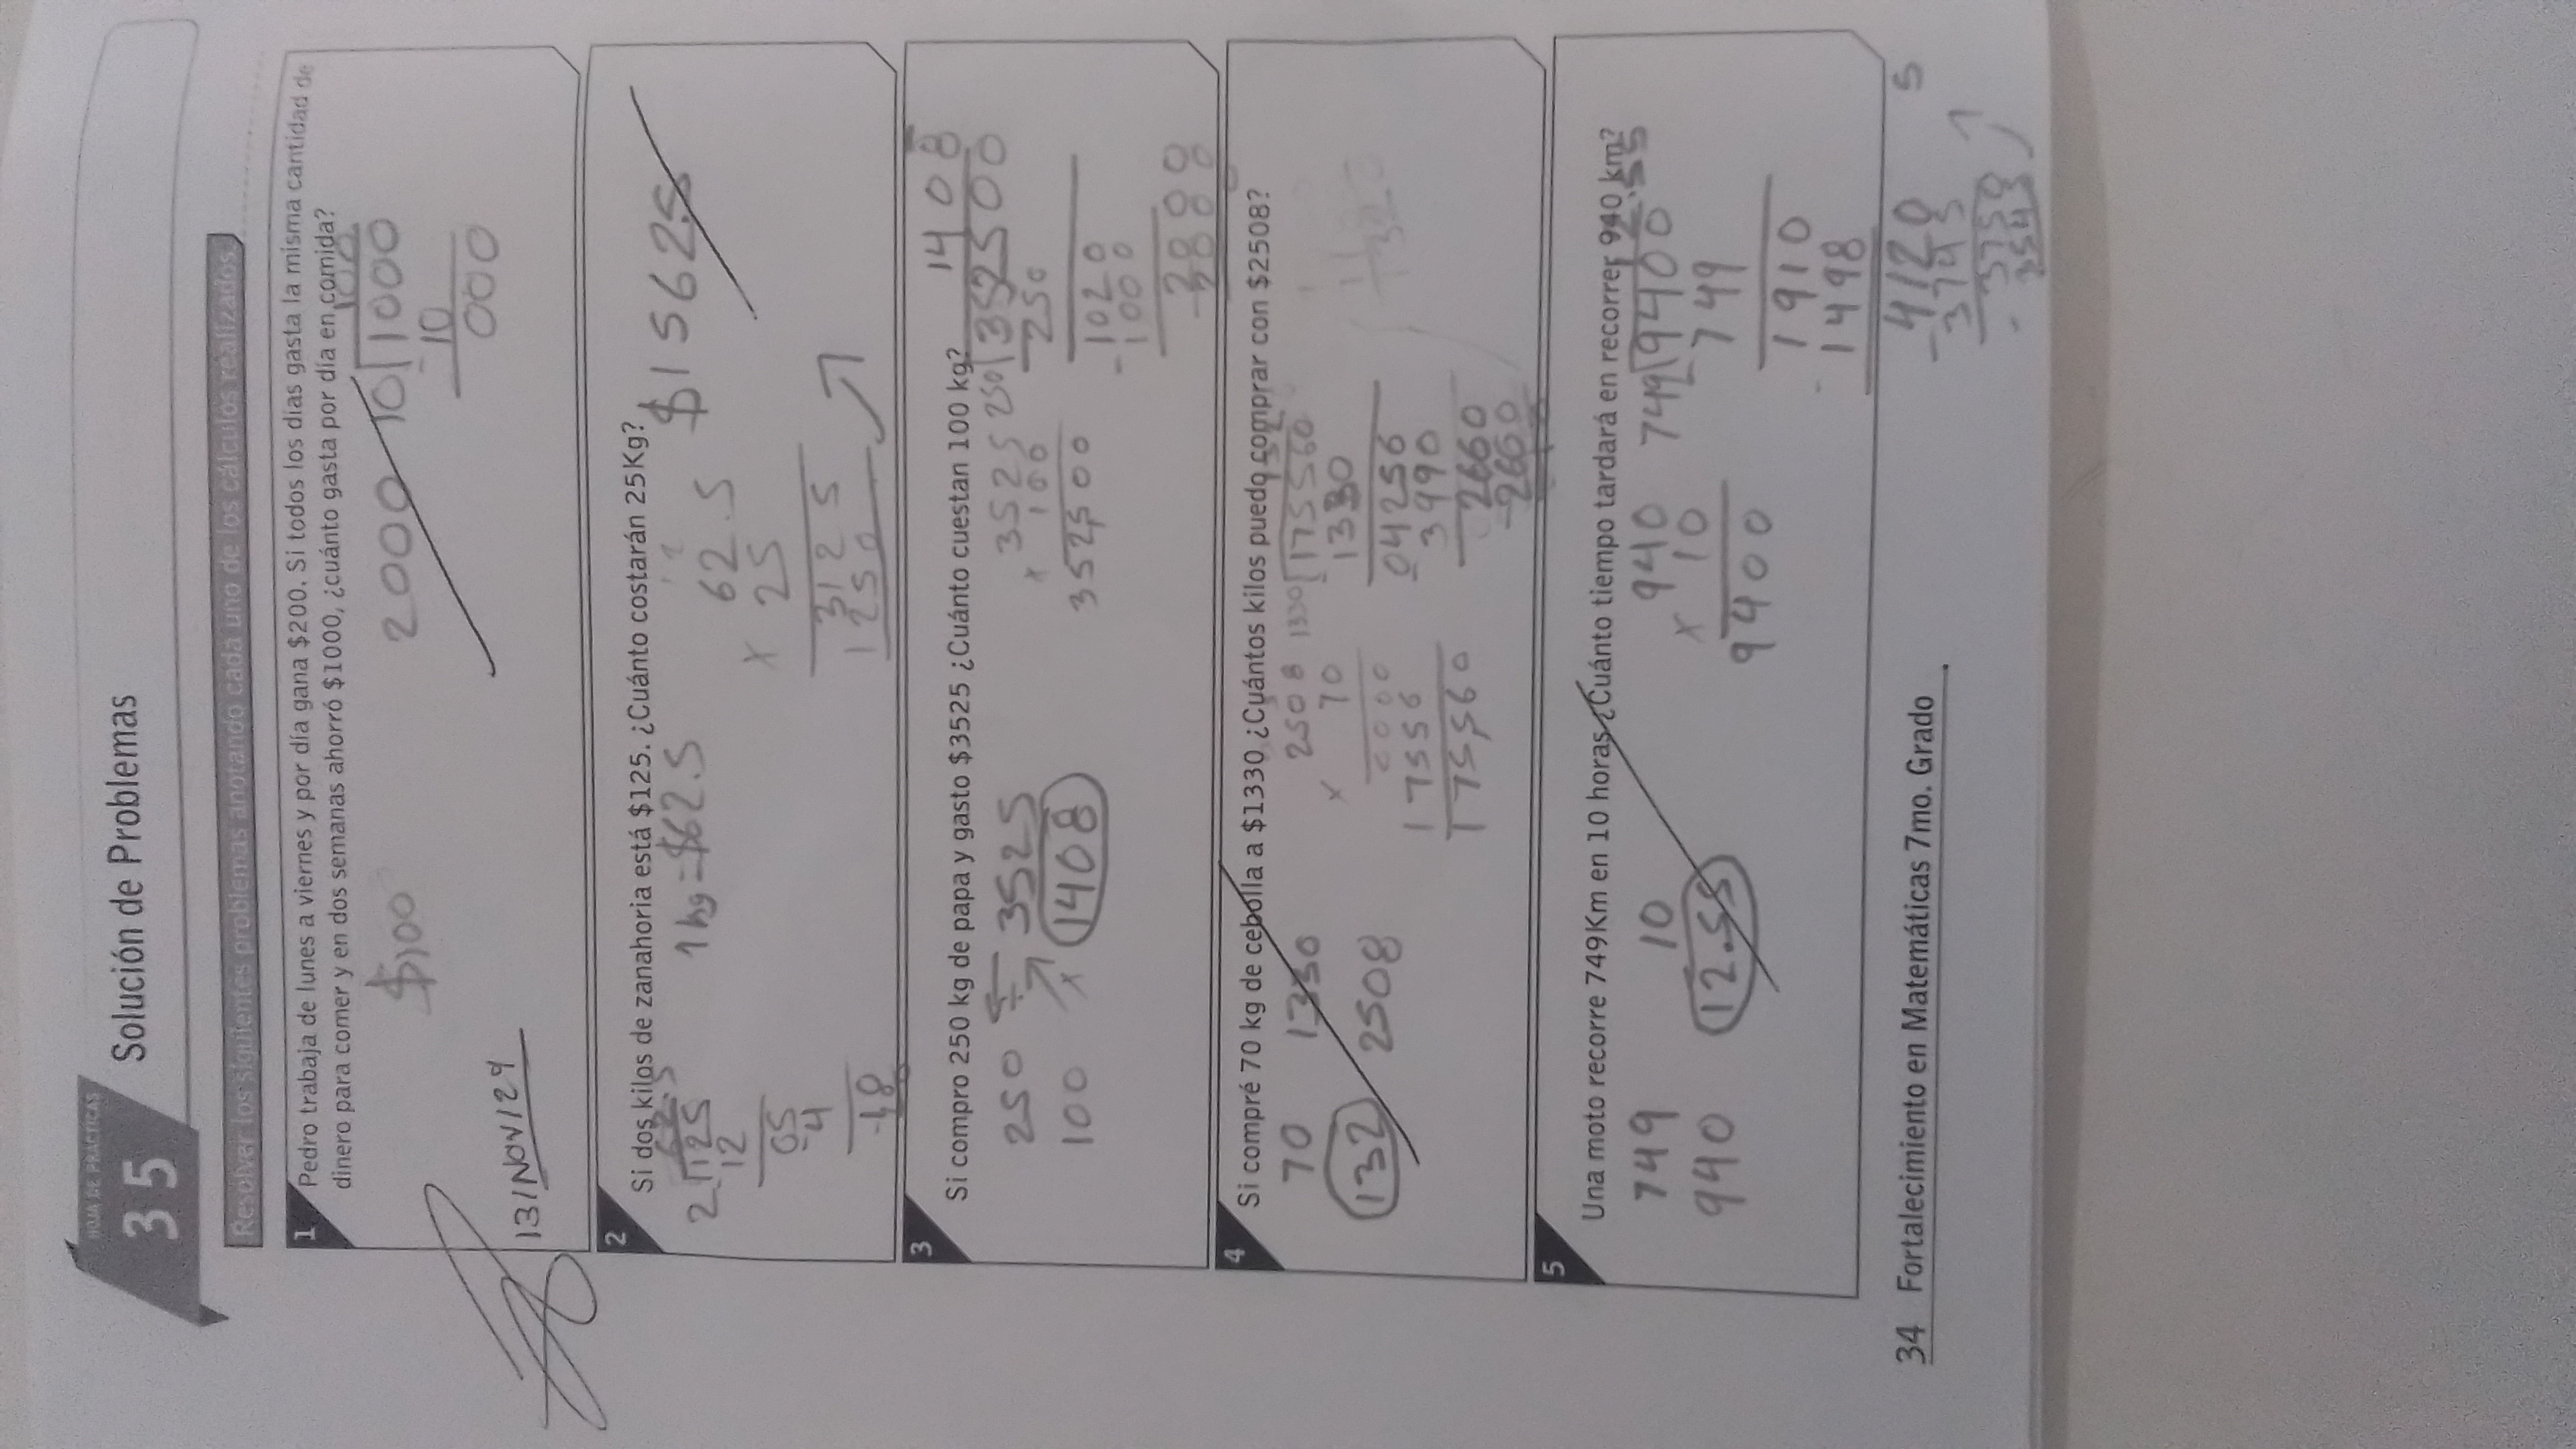 HOJA DE PRÁCTICAS
35
Solución de Problemas
Resolver los siguientes problemas anotando cada uno de los cálculos realizados
1
Pedro trabaja de lunes a viernes y por día gana $200. Si todos los días gasta la misma cantidad de
dinero para comer y en dos semanas ahorró $1000, ¿cuánto gasta por día en comida?
$100
2000
100
10 1000
- 10
000
13/NOV/24
2
Si dos kilos de zanahoria está $125. ¿Cuánto costarán 25Kg?
62.5
2 125
12
05
- 4
1 kg = $62.5
62.5
x 25
3125
1250
$1562.5
3
Si compro 250 kg de papa y gasto $3525 ¿Cuánto cuestan 100 kg?
250 ÷ 3525
100 x 1408
3525
x 100
352,500
1408
250 352500
250
1020
- 1000
2000
4
Si compré 70 kg de cebolla a $1330 ¿Cuántos kilos puedo comprar con $2508?
70 1330
132 2508
2508
x 70
0000
17556
175,560
132
1330 175560
- 1330
04256
- 3990
2660
- 2660
5
Una moto recorre 749Km en 10 horas ¿Cuánto tiempo tardará en recorrer 940 km?
749 10
940 12.55
940
x 10
9400
12.55
749 9400
- 749
1910
- 1498
4120
- 3745
3750
5
34 Fortalecimiento en Matemáticas 7mo. Grado